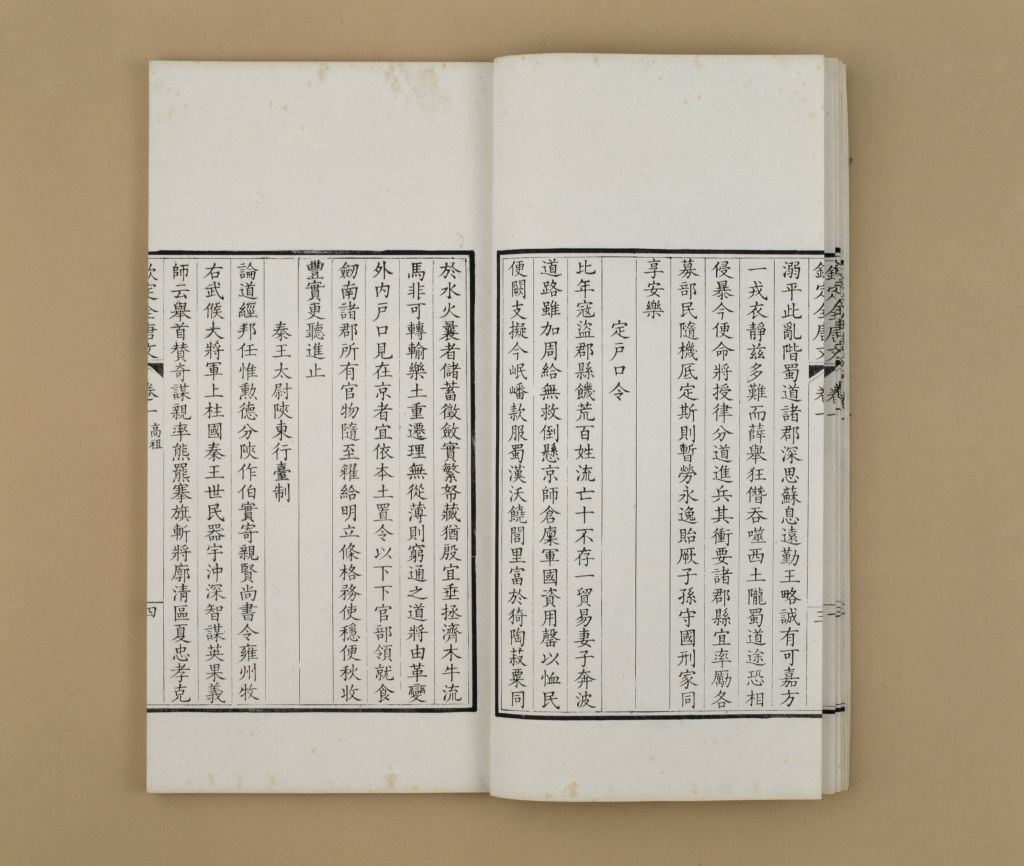 溺平此亂階蜀道諸郡深思蘇息遠勤王略誠有可嘉方
一戎衣靜茲多難而薛舉狂僭吞噬西土隴蜀道途恐相
侵暴今便命將授律分道進兵其衝要諸郡縣宜率勵各
募部民隨機厎定斯則暫勞永逸貽厥子孫守國刑家同
享安樂
定戶口令
比年寇盜郡縣饑荒百姓流亡十不存一貿易妻子奔波
道路雖加周給無救倒懸京師倉廩軍國資用罄以恤民
便闕支擬今岷嶓款服蜀漢沃饒閭里富於猗陶菽粟同
於水火曩者儲蓄徵斂實繁帑藏猶殷宜垂拯濟木牛流
馬非可轉輸樂土重遷理無從薄則窮通之道將由革變
外內戶口見在京者宜依本土置令以下下官部領就食
劒南諸郡所有官物隨至糴給明立條格務使穩便秋收
豐實更聽進止
秦王太尉陝東行臺制
論道經邦任惟勳德分陝作伯實寄親賢尚書令雍州牧
右武候大將軍上柱國秦王世民器宇沖深智謀英果義
師云舉首贊奇謀親率熊羆搴旗斬將廓清區夏忠孝克
欽定全唐文 卷一 高祖 四